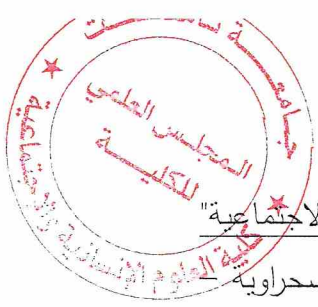 جامعة
المجلس العلمي
للكلية
كلية العلوم الإنسانية والاجتماعية
الاجتماعية"
سحراوية